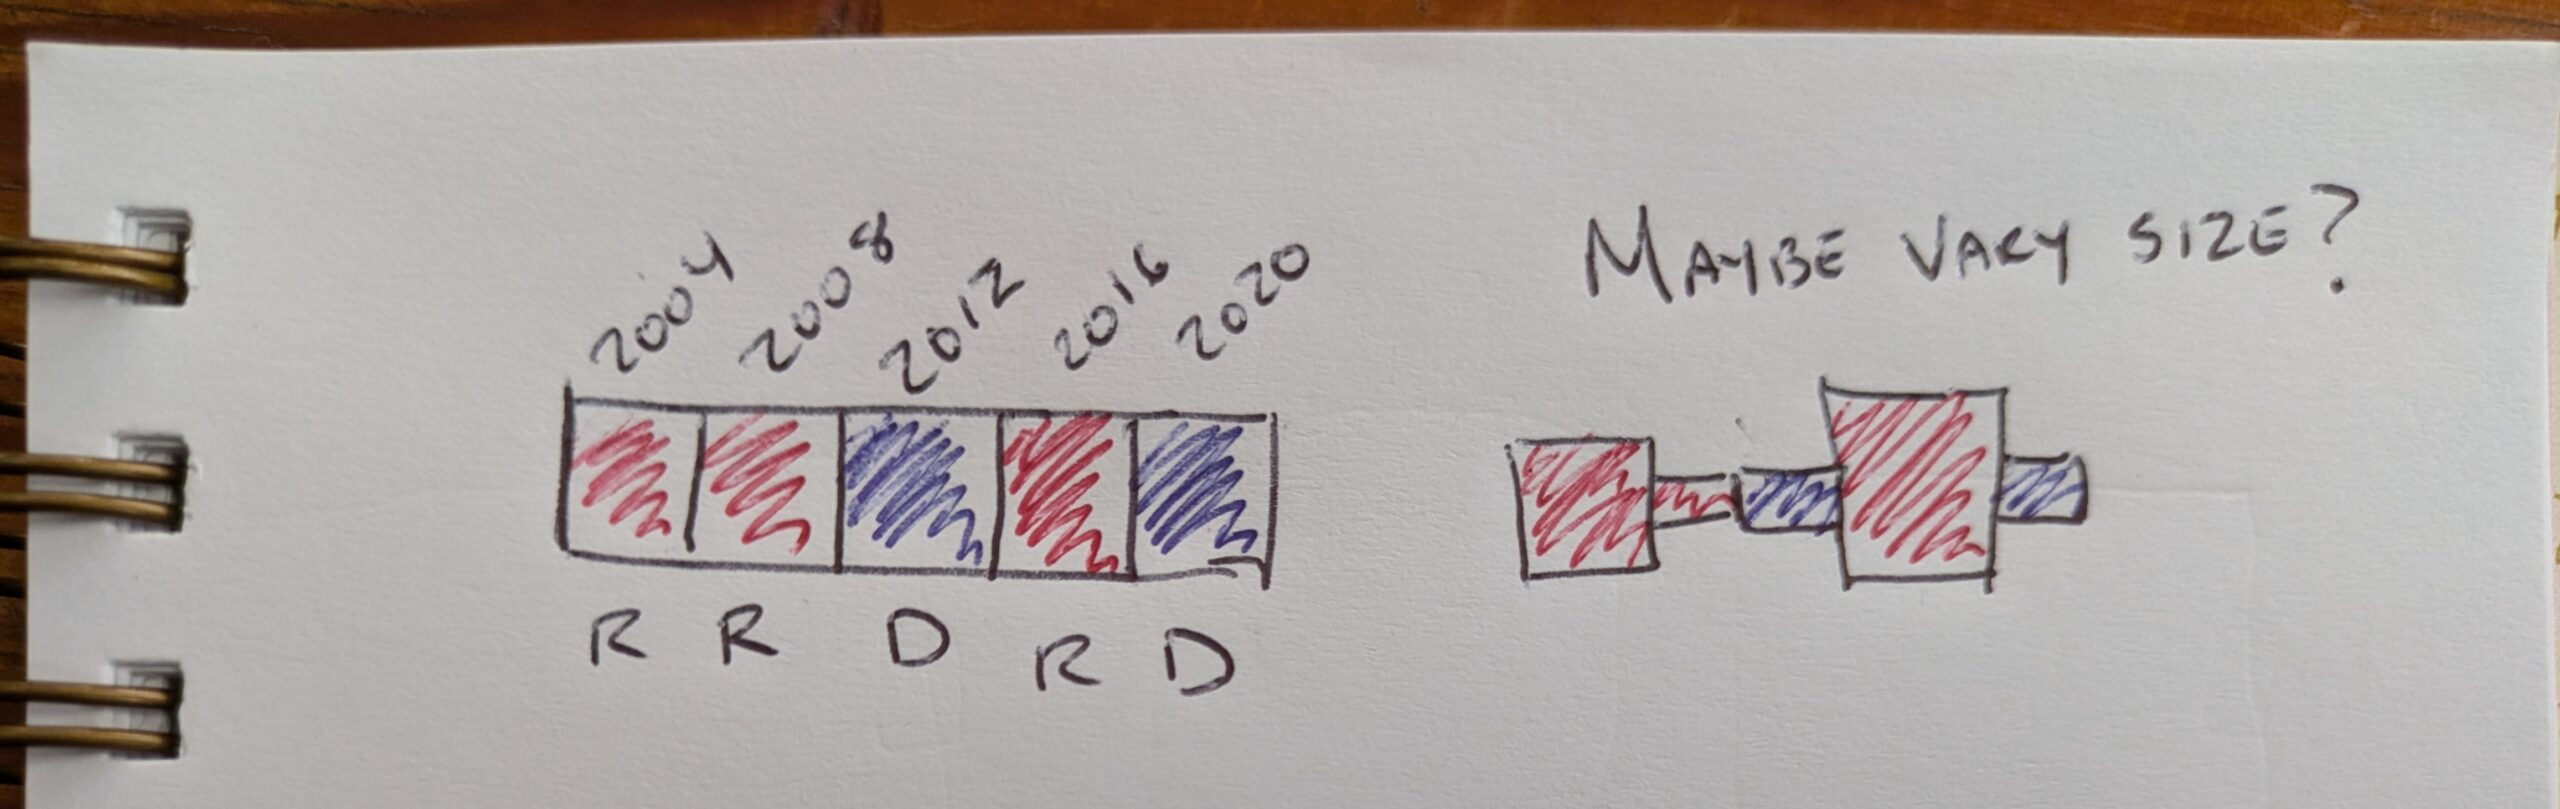 2004 2008 2012 2016 2020
R R D R D
MAYBE VARY SIZE?